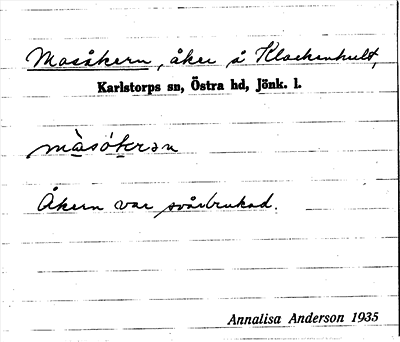 Masåkern, åker å Klockenhult,
Karlstorps sn, Östra hd, Jönk. l.
màsókrən
Åkern var svårbrukad.
Annalisa Anderson 1935